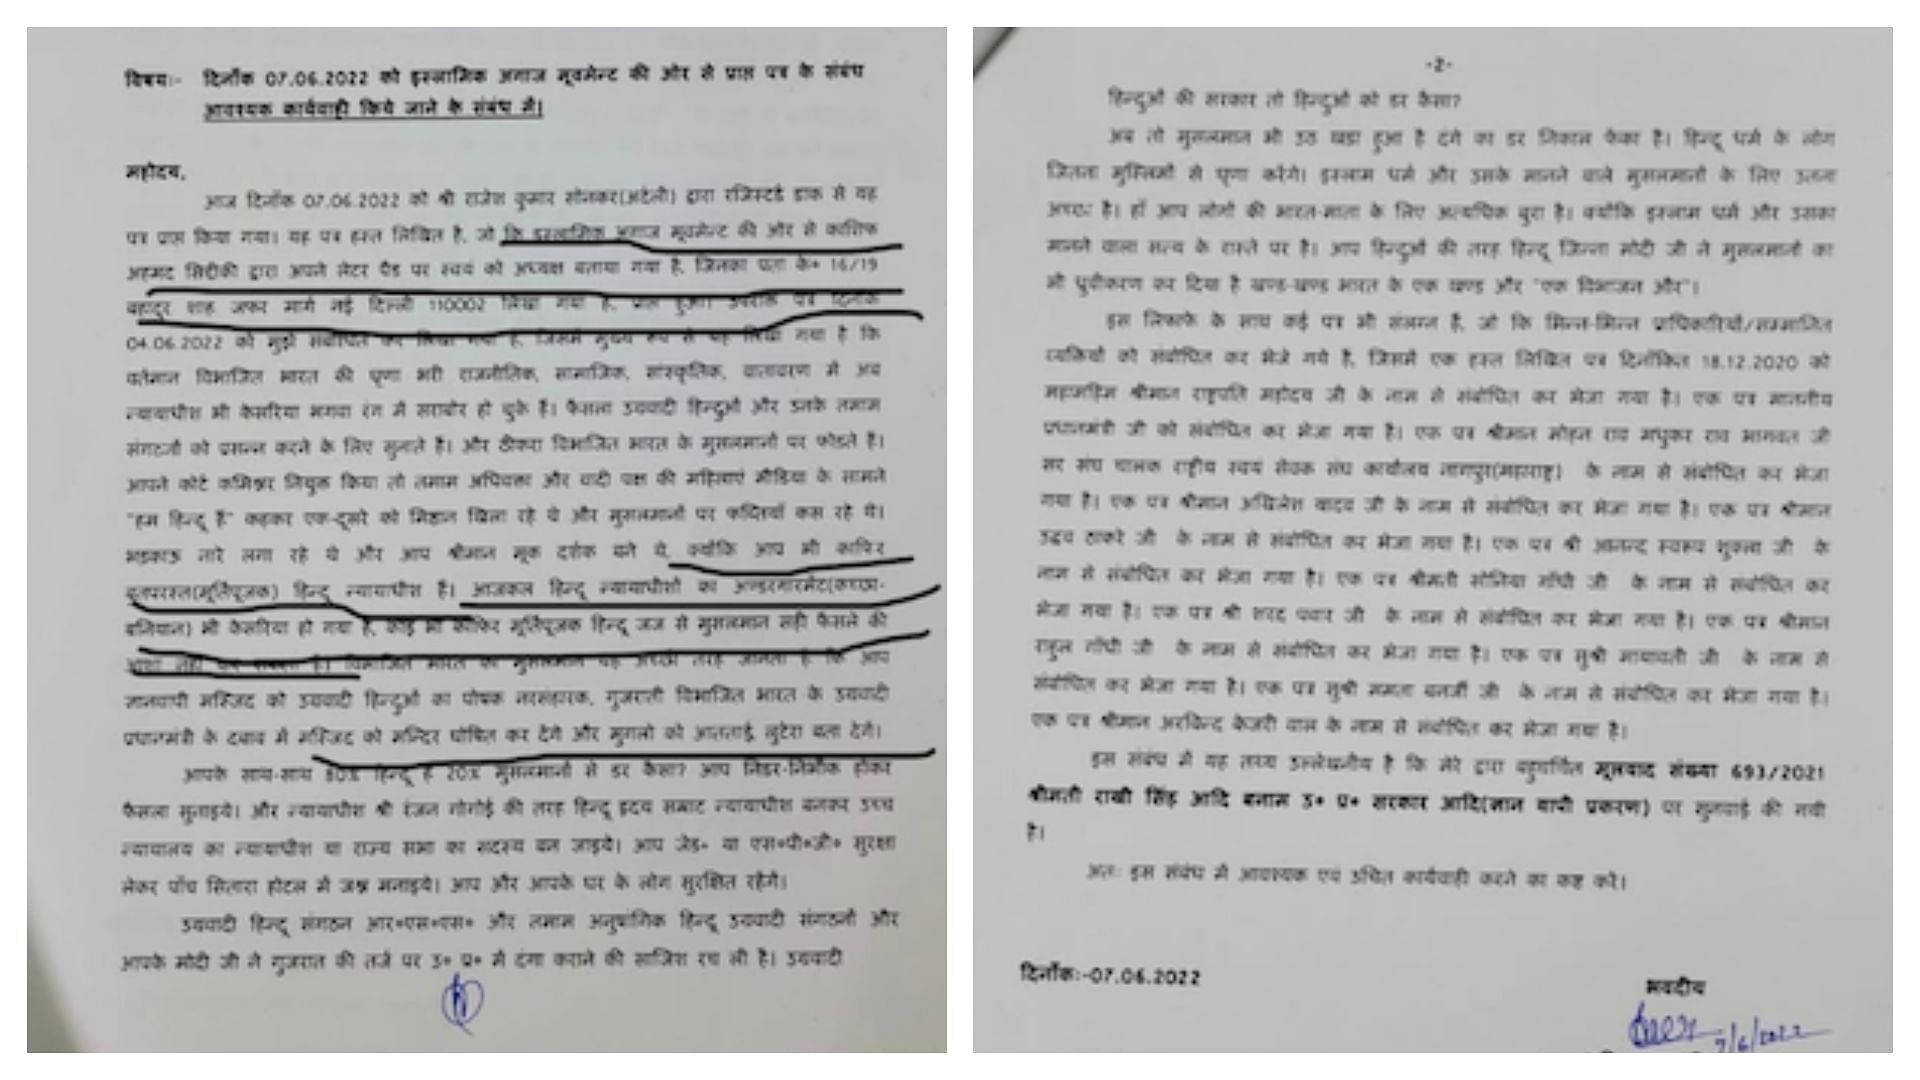 विषयः- दिनाँक 07.06.2022 को इस्लामिक अगाज मूवमेन्ट की ओर से प्राप्त पत्र के संबंध
आवश्यक कार्यवाही किये जाने के संबंध में।
महोदय,
आज दिनाँक 07.06.2022 को श्री राजेश कुमार सोनकर(अर्दली) द्वारा रजिस्टर्ड डाक से यह
पत्र प्राप्त किया गया। यह पत्र हस्त लिखित है, जो कि इस्लामिक अगाज मूवमेन्ट की ओर से काशिफ
अहमद सिद्दीकी द्वारा अपने लेटर पैड पर स्वयं को अध्यक्ष बताया गया है, जिनका पता के० 16/19
बहादुर शाह जफर मार्ग नई दिल्ली 110002 लिखा गया है, प्राप्त हुआ। उपरोक्त पत्र दिनाँक
04.06.2022 को मुझे संबोधित कर लिखा गया है, जिसमें मुख्य रूप से यह लिखा गया है कि
वर्तमान विभाजित भारत की घृणा भरी राजनीतिक, सामाजिक, सांस्कृतिक, वातावरण में अब
न्यायाधीश भी केसरिया भगवा रंग में सराबोर हो चुके हैं। फैसला उग्रवादी हिन्दुओं और उनके तमाम
संगठनों को प्रसन्न करने के लिए सुनाते है। और ठीकरा विभाजित भारत के मुसलमानों पर फोडते है।
आपने कोर्ट कमिश्नर नियुक्त किया तो तमाम अधिवक्ता और वादी पक्ष की महिलाएं मीडिया के सामने
"हम हिन्दू हैं" कहकर एक-दूसरे को मिष्ठान खिला रहे थे और मुसलमानों पर फब्तियाँ कस रहे थे।
भड़काऊ नारे लगा रहे थे और आप श्रीमान मूक दर्शक बने थे, क्योंकि आप भी काफिर
बुतपरस्त(मूर्तिपूजक) हिन्दू न्यायाधीश है। आजकल हिन्दू न्यायाधीशों का अन्डरगारमेंट(कच्छा-
बनियान) भी केसरिया हो गया है, कोई भी काफिर मूर्तिपूजक हिन्दू जज से मुसलमान सही फैसले की
आशा नहीं कर सकता है। विभाजित भारत का मुसलमान यह अच्छी तरह जानता है कि आप
ज्ञानवापी मस्जिद को उग्रवादी हिन्दुओं का पोषक नरसंहारक, गुजराती विभाजित भारत के उग्रवादी
प्रधानमंत्री के दबाव में मस्जिद को मन्दिर घोषित कर देंगे और मुगलो को आतताई, लुटेरा बता देंगे।
आपके साथ-साथ 80% हिन्दू है 20% मुसलमानों से डर कैसा? आप निडर-निर्भीक होकर
फैसला सुनाइये। और न्यायाधीश श्री रंजन गोगोई की तरह हिन्दू ह्रदय सम्राट न्यायाधीश बनकर उच्च
न्यायालय का न्यायाधीश या राज्य सभा का सदस्य बन जाइये। आप जेड० या एस०पी०जी० सुरक्षा
लेकर पाँच सितारा होटल में जश्न मनाइये। आप और आपके घर के लोग सुरक्षित रहेंगे।
उग्रवादी हिन्दू संगठन आर०एस०एस० और तमाम अनुषांगिक हिन्दू उग्रवादी संगठनों और
आपके मोदी जी ने गुजरात की तर्ज पर उ० प्र० में दंगा कराने की साजिश रच ली है। उग्रवादी
-2-
हिन्दुओं की सरकार तो हिन्दुओं को डर कैसा?
अब तो मुसलमान भी उठ खडा हुआ है दंगे का डर निकाल फेंका है। हिन्दू धर्म के लोग
जितना मुस्लिमों से घृणा करेंगे। इस्लाम धर्म और उसके मानने वाले मुसलमानों के लिए उतना
अच्छा है। हाँ आप लोगों की भारत-माता के लिए अत्यधिक बुरा है। क्योंकि इस्लाम धर्म और उसका
मानने वाला सत्य के रास्ते पर है। आप हिन्दुओं की तरह हिन्दू जिन्ना मोदी जी ने मुसलमानों का
भी ध्रुवीकरण कर दिया है खण्ड-खण्ड भारत के एक खण्ड और "एक विभाजन और"।
इस लिफाफे के साथ कई पत्र भी संलग्न है, जो कि भिन्न-भिन्न प्राधिकारियों/सम्मानित
व्यक्तियों को संबोधित कर भेजे गये है, जिसमें एक हस्त लिखित पत्र दिनाँकित 18.12.2020 को
महामहिम श्रीमान राष्ट्रपति महोदय जी के नाम से संबोधित कर भेजा गया है। एक पत्र माननीय
प्रधानमंत्री जी को संबोधित कर भेजा गया है। एक पत्र श्रीमान मोहन राव मधुकर राव भागवत जी
सर संघ चालक राष्ट्रीय स्वयं सेवक संघ कार्यालय नागपुर(महाराष्ट्र) के नाम से संबोधित कर भेजा
गया है। एक पत्र श्रीमान अखिलेश यादव जी के नाम से संबोधित कर भेजा गया है। एक पत्र श्रीमान
उद्धव ठाकरे जी के नाम से संबोधित कर भेजा गया है। एक पत्र श्री आनन्द स्वरूप शुक्ला जी के
नाम से संबोधित कर भेजा गया है। एक पत्र श्रीमती सोनिया गाँधी जी के नाम से संबोधित कर
भेजा गया है। एक पत्र श्री शरद पवार जी के नाम से संबोधित कर भेजा गया है। एक पत्र श्रीमान
राहुल गाँधी जी के नाम से संबोधित कर भेजा गया है। एक पत्र सुश्री मायावती जी के नाम से
संबोधित कर भेजा गया है। एक पत्र सुश्री ममता बनर्जी जी के नाम से संबोधित कर भेजा गया है।
एक पत्र श्रीमान अरविन्द केजरी वाल के नाम से संबोधित कर भेजा गया है।
इस संबंध में यह तथ्य उल्लेखनीय है कि मेरे द्वारा बहुचर्चित मूलवाद संख्या 693/2021
श्रीमती राखी सिंह आदि बनाम उ० प्र० सरकार आदि(ज्ञान वापी प्रकरण) पर सुनवाई की गयी
है।
अतः इस संबंध में आवश्यक एवं उचित कार्यवाही करने का कष्ट करें।
दिनाँकः-07.06.2022
भवदीय
7/6/2022